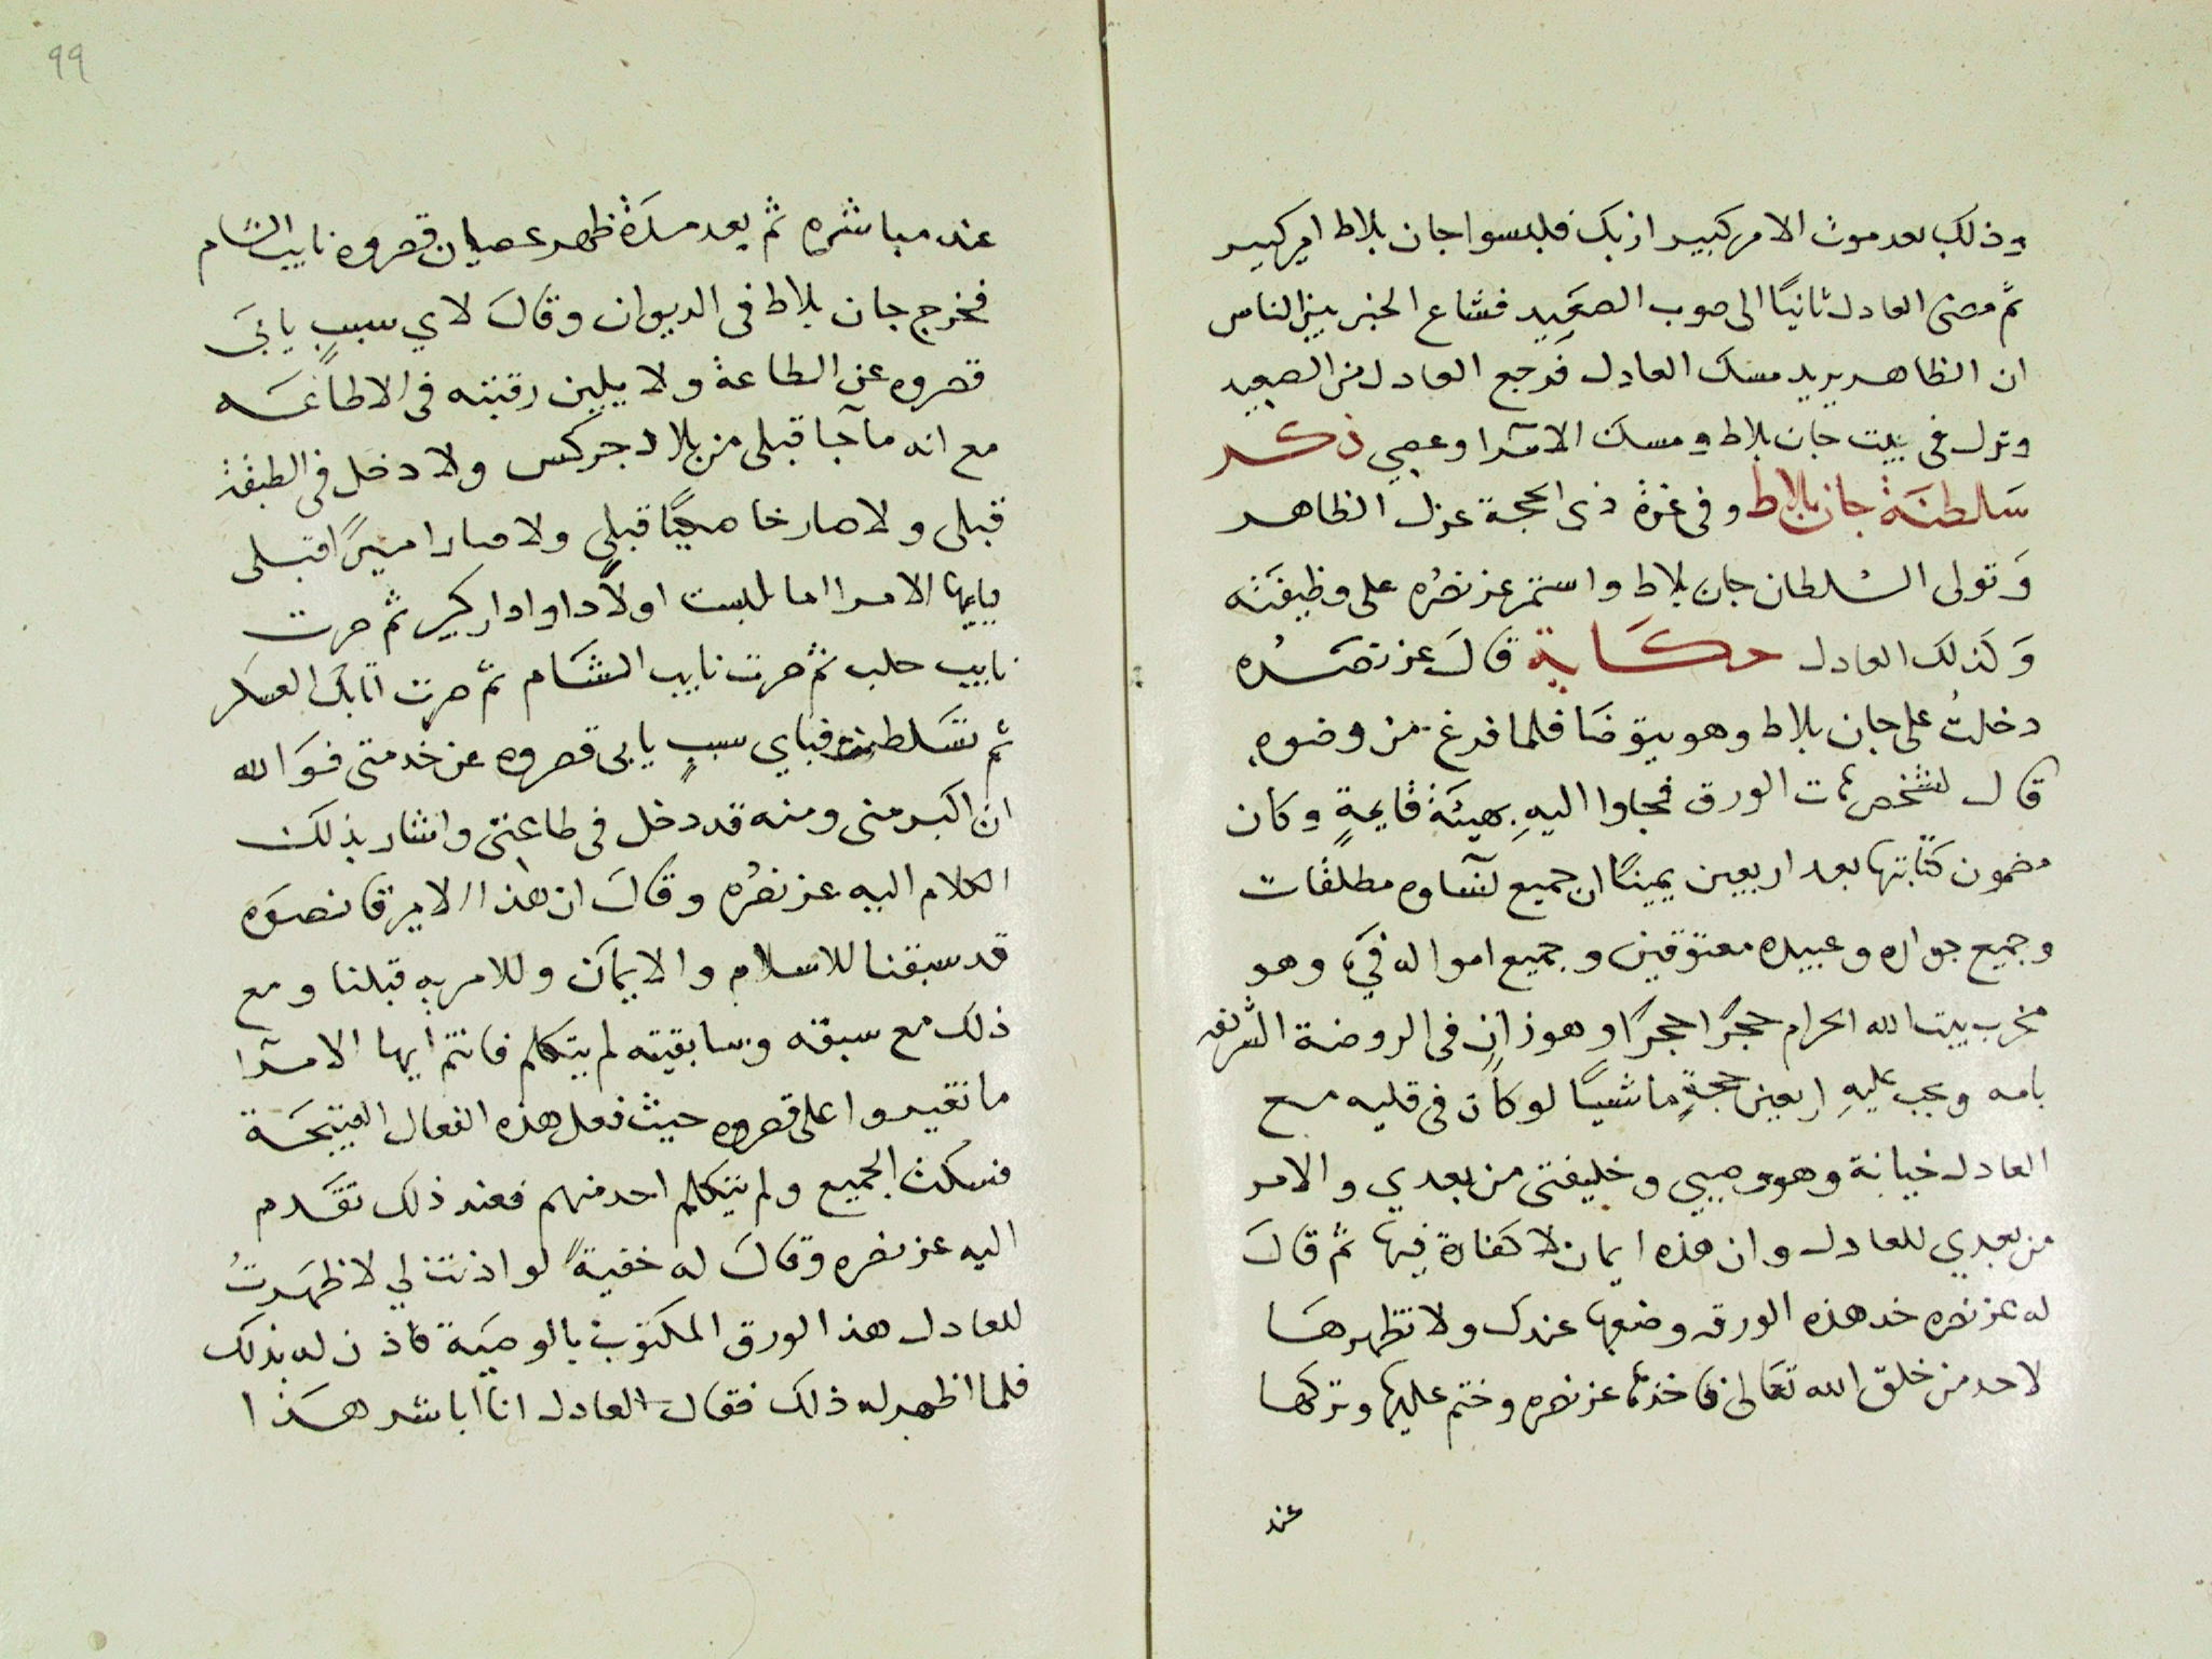 وذلك بعد موت الامير كبير ازبك فلبسوا جان بلاط امير كبير
ثمّ مضى العادل ثانيًا الى صوب الصعَيِد فشاع الخبر بين الناس
ان الظاهر يريد مسك العادل فرجع العادل من الصعيد
ونزل فى بيت جان بلاط ومسك الامرآ وعصي ذكر
سَلطنَة جان بلاط وفى غرة ذى الحجة عزل الظاهر
وَتولى السُلطان جان بلاط واستمر عز نصرُه على وظيفَته
وَكذلك العادل حكَاية قالَ عز نصَرُه
دخلتُ على جان بلاط وهو يتوضا فلما فرغ من وضوءِه
قال لشخص هات الورق فجاوا اليهِ بهيئة قايمةٍ وكان
مضمون كتابتها بعد اربعين يمينًا ان جميع نسآوه مطلقات
وجميع جواره وعبيده معتوقين وجميع امواله فيَء وهو
مخرب بيت الله الحرام حجرًا حجرًا وهو زانٍ فى الروضة الشريفه
بامه ويجب عليهِ اربعين حجةٍ ماشيًا لو كان فى قلبه مع
العادل خيانة وهو وصيي وخليفتى من بعدي والامر
من بعدي للعادل وان هذه ايمان لا كفارة فيها ثمّ قالَ
له عز نصره خد هذه الورقه وضعها عندك ولا تظهرهَا
لاحد من خلق الله تعَالى فاخذها عز نصره وختم عليها وتركها
عند
٩٩
عند مباشره ثم بعد مدَة ظهر عصيان قصروه نايب الشام
فخرج جان بلاط فى الديوان وقالَ لاي سببٍ يابَى
قصروه عن الطاعة ولا يلين رقبته فى الاطاعَه
مع انه ما جآ قبلى من بلاد جركس ولا دخل فى الطبقة
قبلى ولا صار خاصكيًا قبلى ولا صار اميرًا قبلى
يايها الامرا اما لبست اولاً داوادار كبير ثم صرت
نايب حلب ثم صرت نايب الشَام ثمّ صرت اتابك العسكر
ثم تسَلطنت فباي سببٍ يابى قصروه عن خدمتى فوَالله
ان اكبر منى ومنه قد دخل فى طاعتى واشار بذلك
الكلام اليه عز نصرُه وقالَ ان هذا الامير قانصوَه
قد سبقنا للاسلام والايمَان وللامريه قبلنا ومع
ذلك مع سبقه وسابقيته لم يتكلم فانتم ايها الامرآ
ما تقيموا على قصروه حيث فعل هذه الفعال القبيحَة
فسكت الجميع ولم يتكلم احد منهم فعند ذلك تقَدم
اليه عز نصره وقالَ له خفيةً لو اذنت لي لاظهَرتُ
للعادل هذا الورق المكتوب بالوصيَة فاذن له بذلك
فلما اظهر له ذلك فقال العادل انا اباشر هَذا